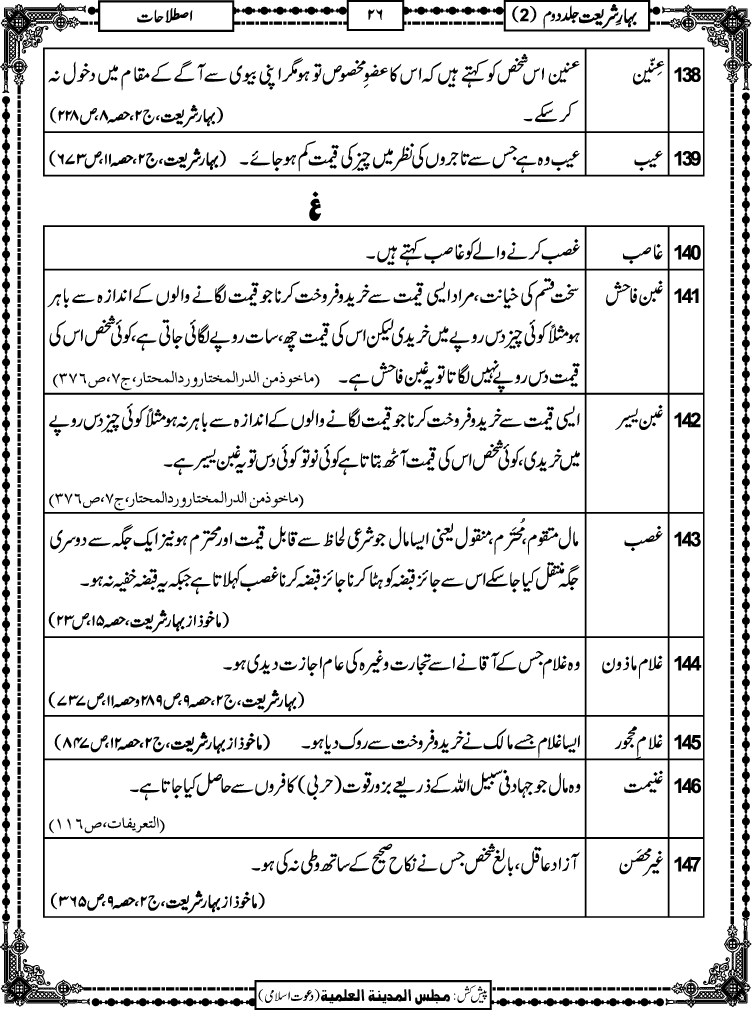 بہارِشریعت جلد دوم (2)
۲۶
اصطلاحات
138 عِنِّین عنین اس شخص کو کہتے ہیں کہ اس کا عضوِ مخصوص تو ہو مگر اپنی بیوی سے آگے کے مقام میں دخول نہ
کر سکے۔ (بہارشریعت،ج۲،حصہ۸،ص۲۲۸)
139 عیب عیب وہ ہے جس سے تاجروں کی نظر میں چیز کی قیمت کم ہو جائے۔ (بہارشریعت،ج۲،حصہ۱۱،ص۶۷۳)
غ
140 غاصب غصب کرنے والے کو غاصب کہتے ہیں۔
141 غبن فاحش سخت قسم کی خیانت، مراد ایسی قیمت سے خرید و فروخت کرنا جو قیمت لگانے والوں کے اندازہ سے باہر
ہو مثلاً کوئی چیز دس روپے میں خریدی لیکن اس کی قیمت چھ، سات روپے لگائی جاتی ہے، کوئی شخص اس کی
قیمت دس روپے نہیں لگاتا تو یہ غبن فاحش ہے۔ (ماخوذ من الدرالمختار وردالمحتار،ج۷،ص۳۷٦)
142 غبن یسیر ایسی قیمت سے خرید و فروخت کرنا جو قیمت لگانے والوں کے اندازہ سے باہر نہ ہو مثلاً کوئی چیز دس روپے
میں خریدی، کوئی شخص اس کی قیمت آٹھ بتاتا ہے کوئی نو تو کوئی دس تو یہ غبن یسیر ہے۔
(ماخوذ من الدرالمختار وردالمحتار،ج۷،ص۳۷٦)
143 غصب مال متقوم، مُحترَم، منقول یعنی ایسا مال جو شرعی لحاظ سے قابل قیمت اور محترم ہو نیز ایک جگہ سے دوسری
جگہ منتقل کیا جا سکے اس سے جائز قبضہ کو ہٹا کر ناجائز قبضہ کرنا غصب کہلاتا ہے جبکہ یہ قبضہ خفیہ نہ ہو۔
(ماخوذ از بہارشریعت،حصہ۱۵،ص۲۳)
144 غلام ماذون وہ غلام جس کے آقا نے اسے تجارت وغیرہ کی عام اجازت دیدی ہو۔
(بہارشریعت،ج۲،حصہ۹،ص۲۸۹وحصہ۱۱،ص۷۳۷)
145 غلامِ محجور ایسا غلام جسے مالک نے خرید و فروخت سے روک دیا ہو۔ (ماخوذ از بہارشریعت،ج۲،حصہ۱۲،ص۸۴۷)
146 غنیمت وہ مال جو جہاد فی سبیل اللہ کے ذریعے بزور قوت (حربی) کافروں سے حاصل کیا جاتا ہے۔
(التعریفات،ص۱۱٦)
147 غیر محصَن آزاد عاقل، بالغ شخص جس نے نکاح صحیح کے ساتھ وطی نہ کی ہو۔
(ماخوذ از بہارشریعت،ج۲،حصہ۹،ص۳۶۵)
پیش کش: مجلس المدینة العلمیة (دعوت اسلامی)